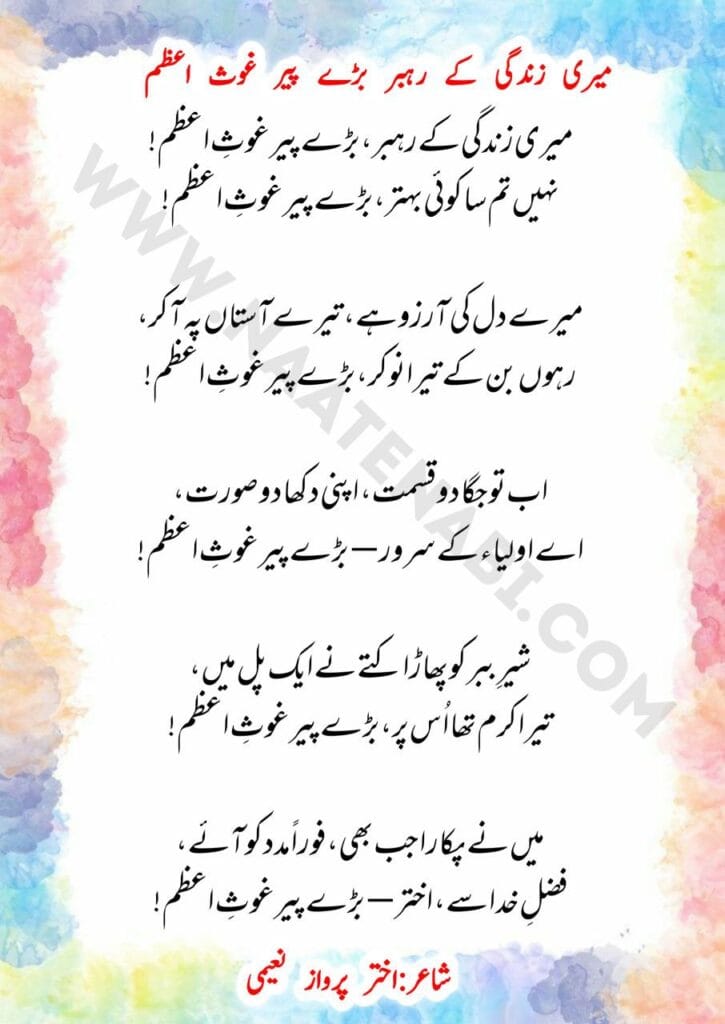 میری زندگی کے رہبر بڑے پیر غوث اعظم
میری زندگی کے رہبر، بڑے پیر غوثِ اعظم!
نہیں تم سا کوئی بہتر، بڑے پیر غوثِ اعظم!
میرے دل کی آرزو ہے، تیرے آستاں پہ آ کر،
رہوں بن کے تیرا نوکر، بڑے پیر غوثِ اعظم!
اب تو جگا دو قسمت، اپنی دکھا دو صورت،
اے اولیاء کے سرور — بڑے پیر غوثِ اعظم!
شیرِ ببر کو پھاڑا کتے نے ایک پل میں،
تیرا کرم تھا اُس پر، بڑے پیر غوثِ اعظم!
میں نے پکارا جب بھی، فوراً مدد کو آئے،
فضلِ خدا سے، اختر — بڑے پیر غوثِ اعظم!
شاعر: اختر پرواز نعیمی
WWW.NAATENABI.COM